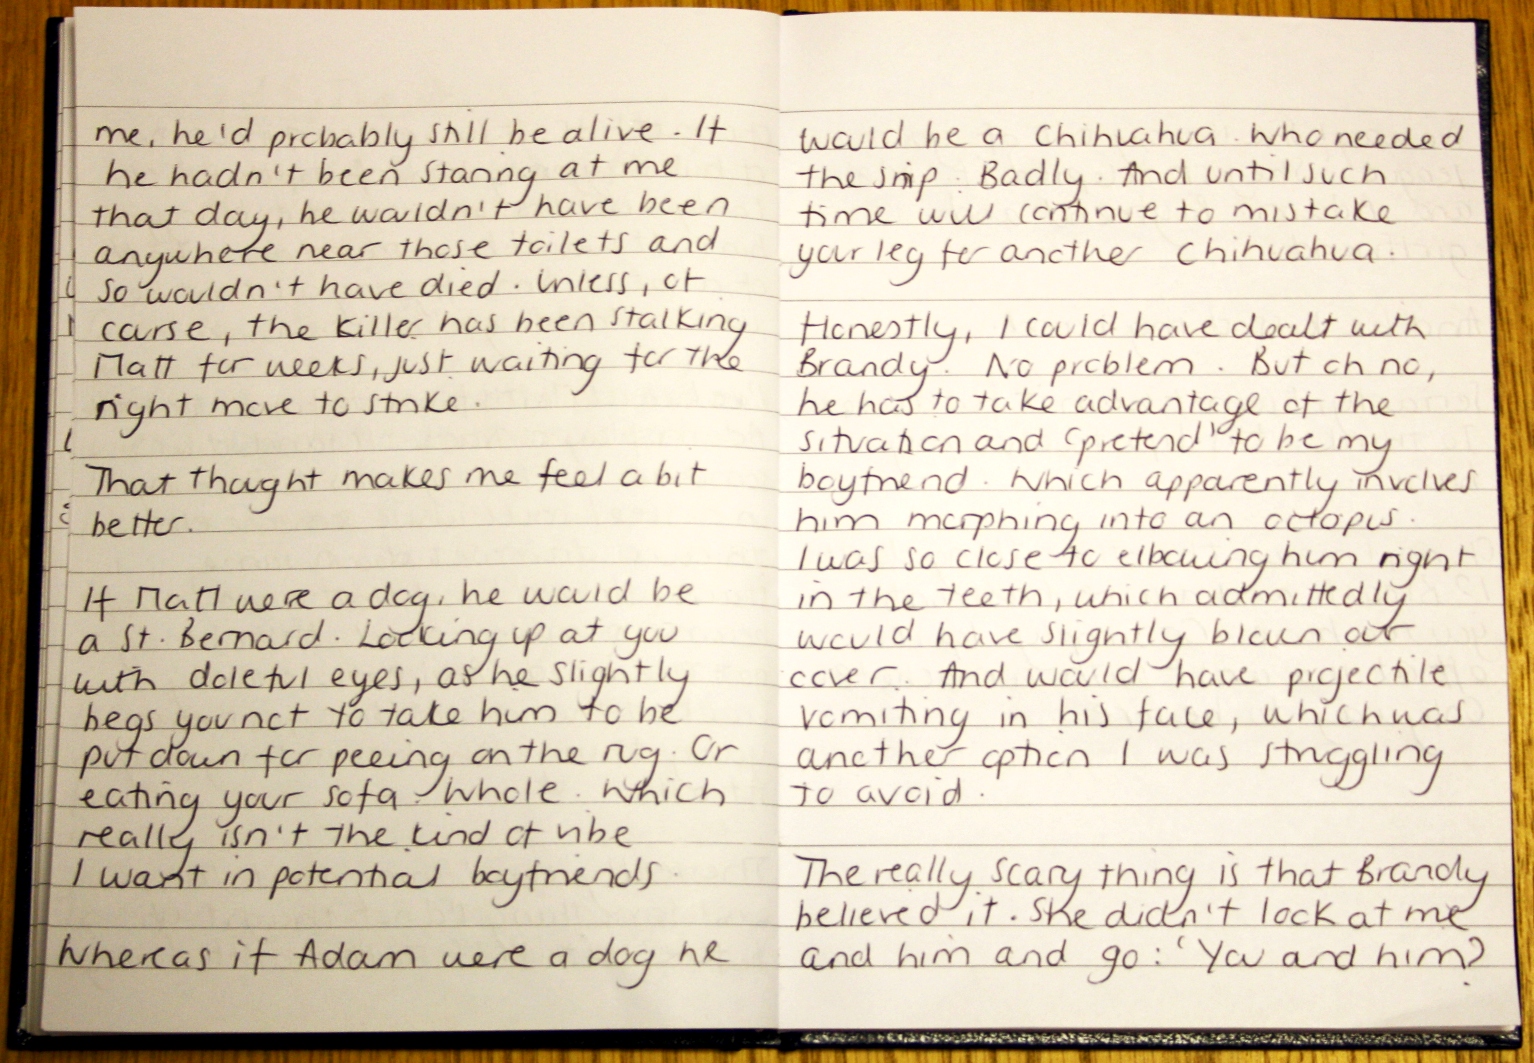 me, he'd probably still be alive. If
he hadn't been staring at me
that day, he wouldn't have been
anywhere near those toilets and
so wouldn't have died. Unless, of
course, the killer has been stalking
Matt for weeks, just waiting for the
right move to strike.
That thought makes me feel a bit
better.
If Matt were a dog, he would be
a St. Bernard. Looking up at you
with doleful eyes, as he slightly
begs you not to take him to be
put down for peeing on the rug. Or
eating your sofa. Whole. Which
really isn't the kind of vibe
I want in potential boyfriends.
Whereas if Adam were a dog he
would be a Chihuahua. Who needed
the snip. Badly. And until such
time will continue to mistake
your leg for another Chihuahua.
Honestly, I could have dealt with
Brandy. No problem. But oh no,
he has to take advantage of the
situation and 'pretend' to be my
boyfriend. Which apparently involves
him morphing into an octopus.
I was so close to elbowing him right
in the teeth, which admittedly
would have slightly blown our
cover. And would have projectile
vomiting in his face, which was
another option I was struggling
to avoid.
The really scary thing is that Brandy
believed it. She didn't look at me
and him and go: 'You and him?